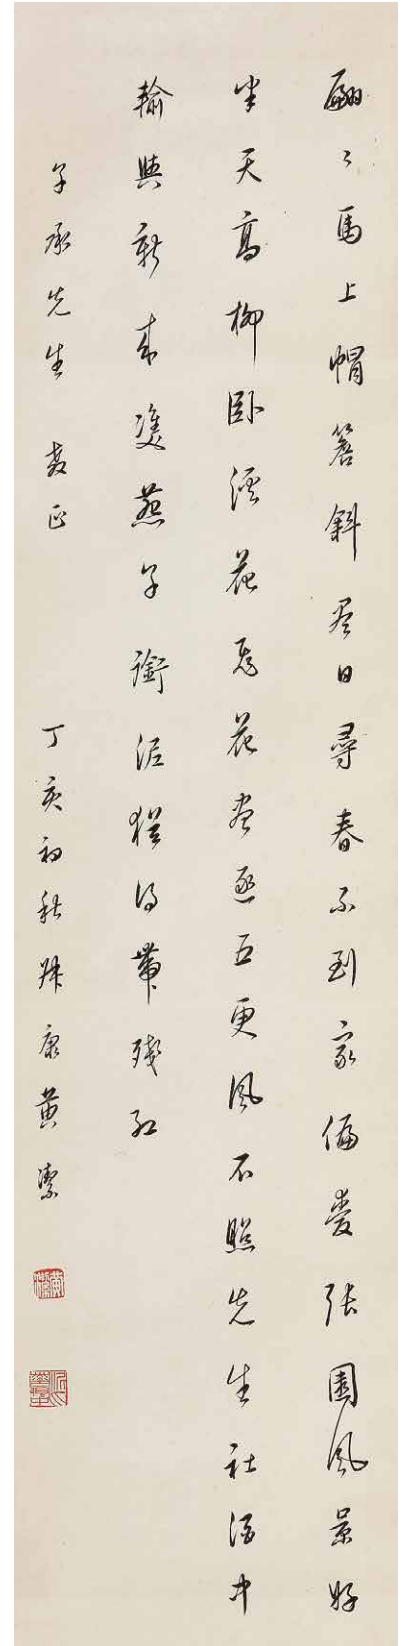 翩々馬上帽簷斜盡日尋春不到家偏愛張園風景好
半天高柳臥溪花飛花盡逐五更風不照先生社酒中
輸與新來雙燕子銜泥猶得帶殘紅
子承先生 教正 丁亥初秋 康黃潔